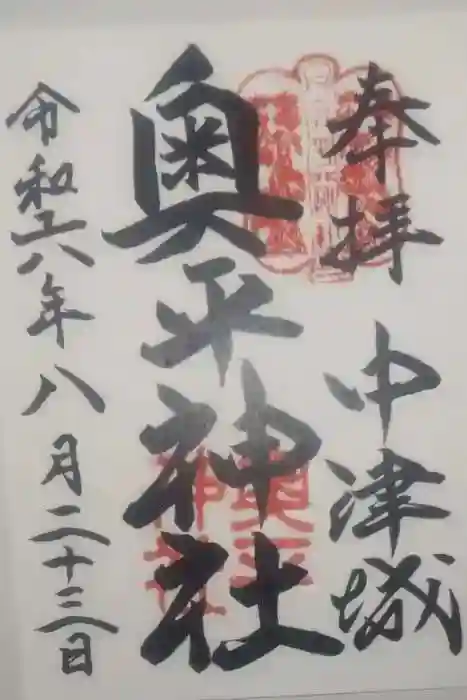 奉拝
中津城
奥平神社
令和六年八月二十三日
奥平
神社